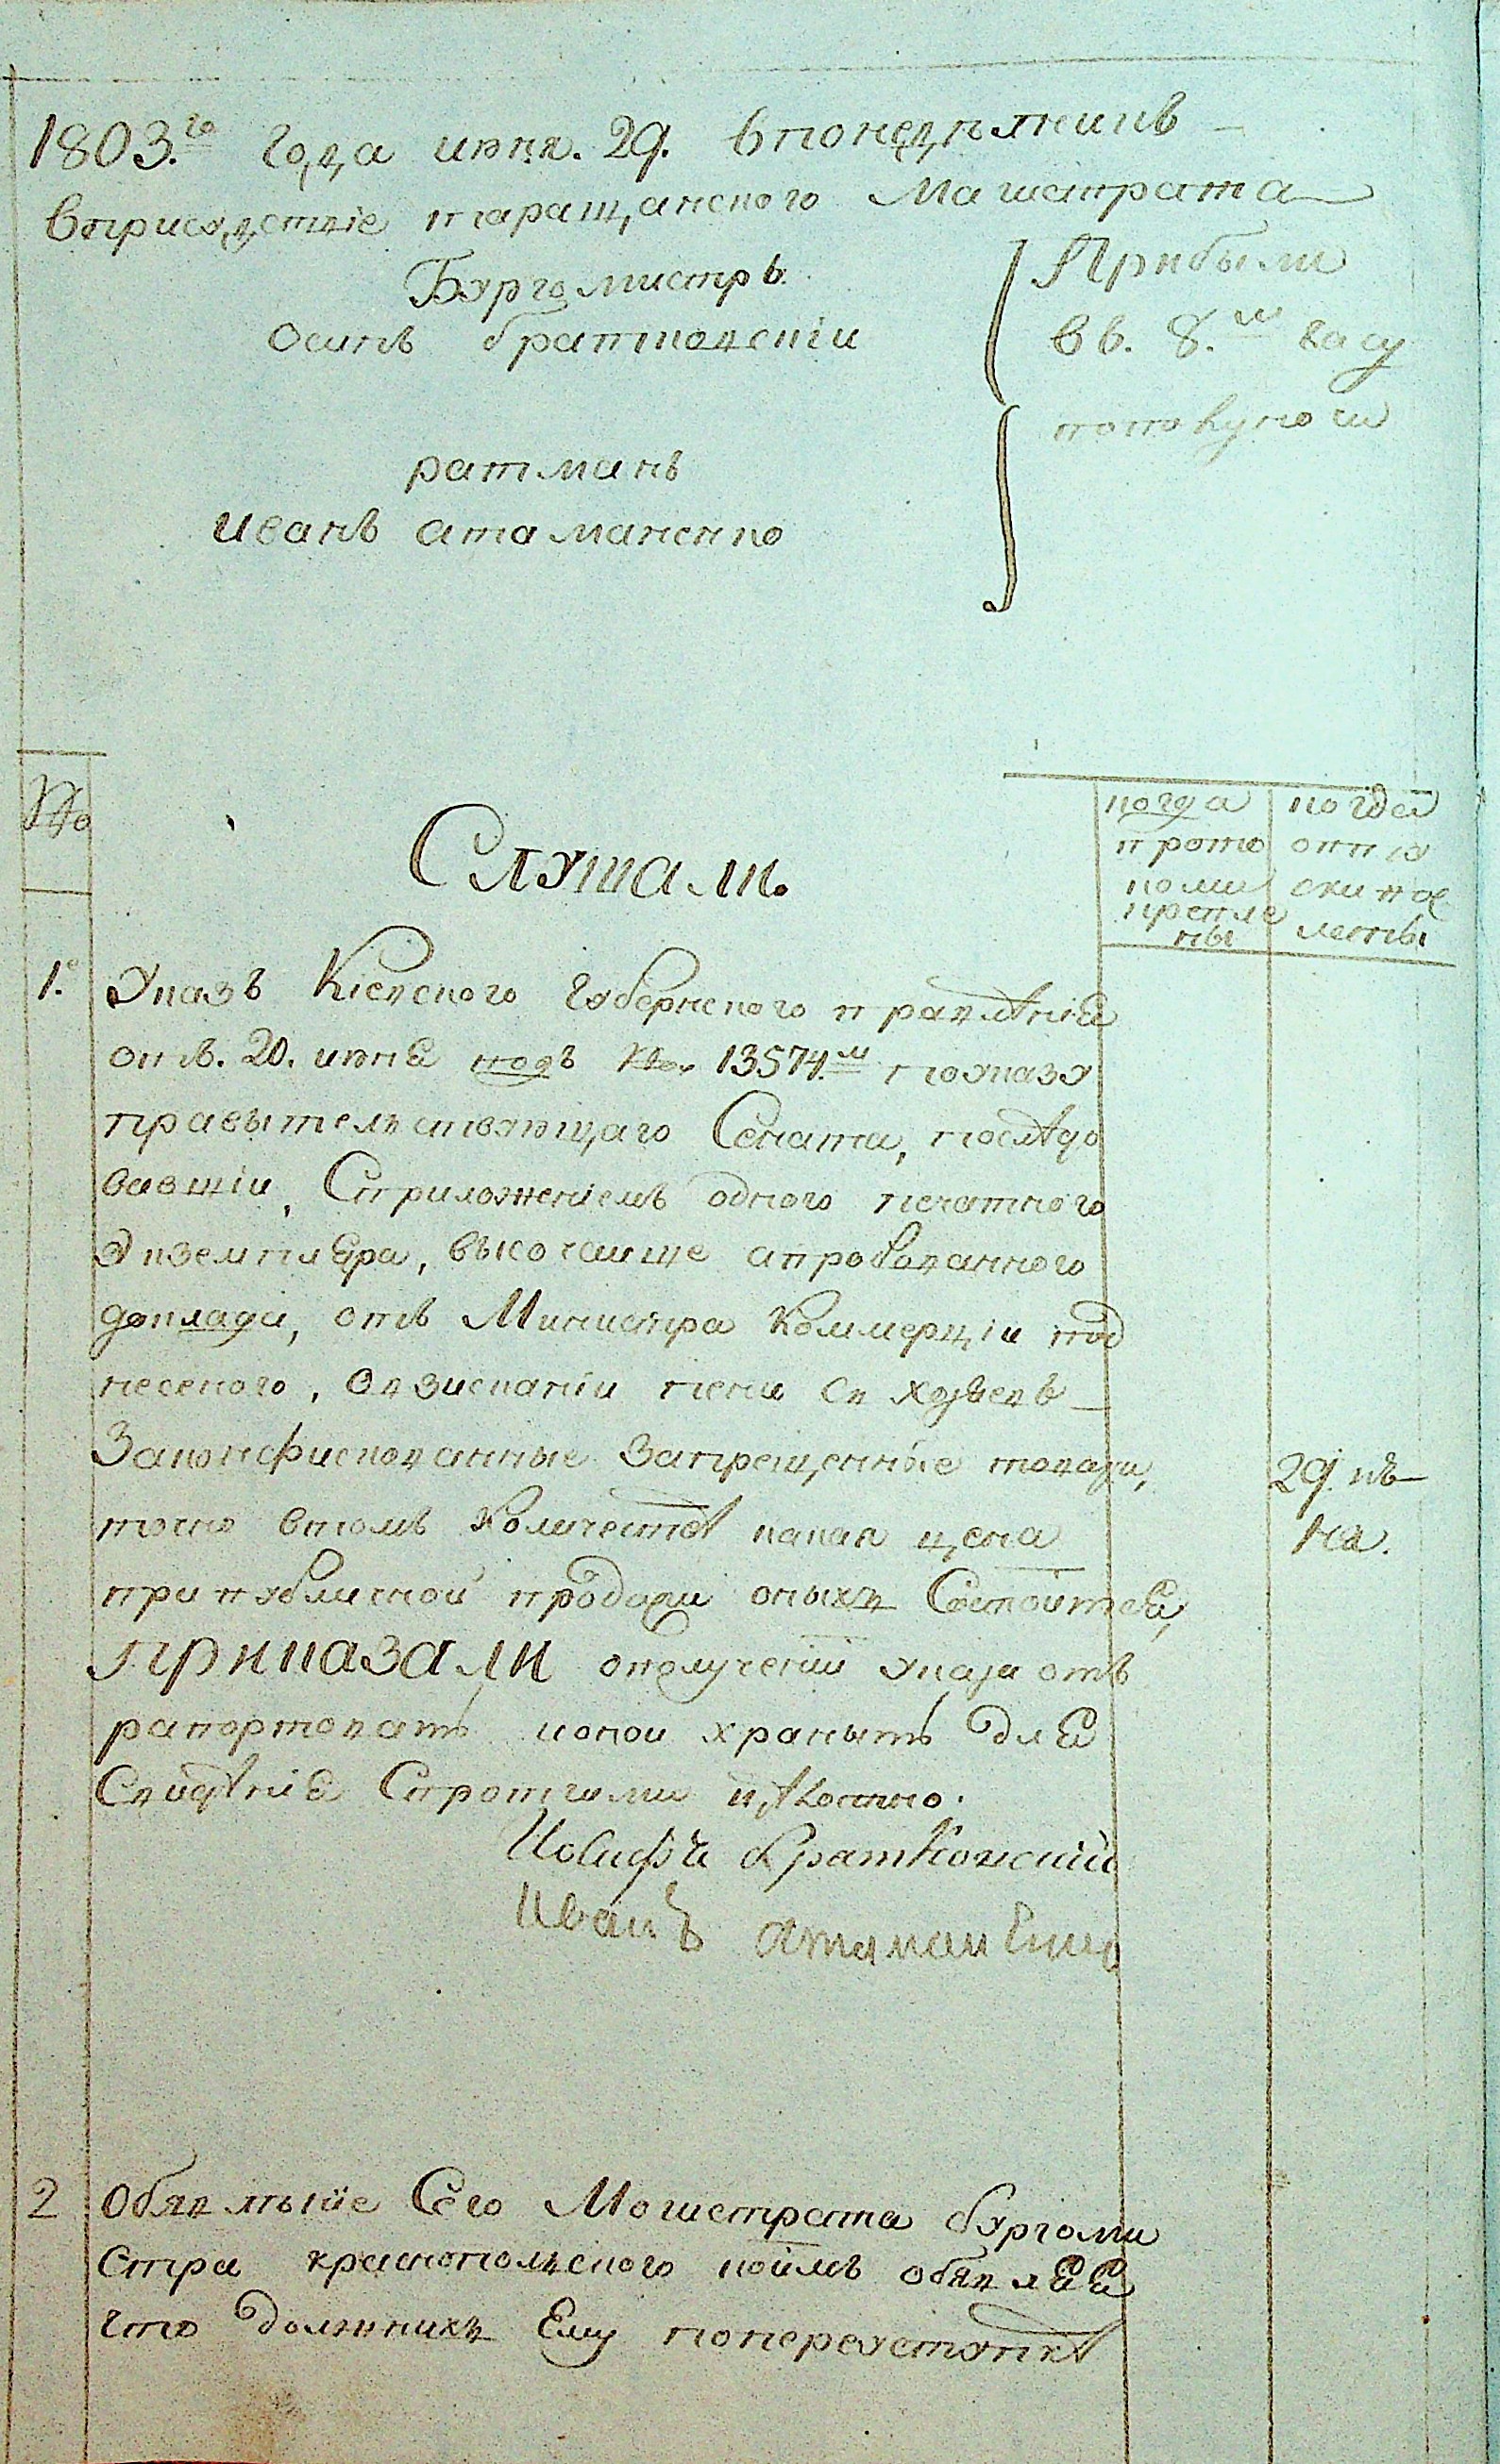 1803.го Года июня. 29. впонеделникъ
вприсудствіе таращанского Магистрата
Бургомистръ
осипъ братковскіи
ратманъ
иванъ атаманенко
Прибыли
въ. 8.м часу
пополуночи
№
Слушали.
когда прото коли крепле ны
когда отпу ски по сланны
1. Указъ Кіевского Губернского правлѣніе
отъ. 20. июне подъ №. 13574.м поуказу
правытелствующаго Сената, послѣдо
вавшіи, Сприложеніемъ одного печатного
Экземпляра, высочаише апробованного
доклада, отъ Министра Коммерціи под
несеного, Овзисканіи пени Св хозяевъ
Законфискованные Запрещенные товари,
точно втомъ Количествѣ какая цена
припубличной продажи оныхъ Состоитсе,
приказали ополученіи указа отъ
рапортовать ионои хранить дле
Свидѣніе Спротчими
Иосифъ Братковскій
Иванъ Атаманенко
29. ию
на.
2 Обявлѣыие Сего Магистрата бургоми
стра краснополского коимъ обявлее
что должникъ Ему